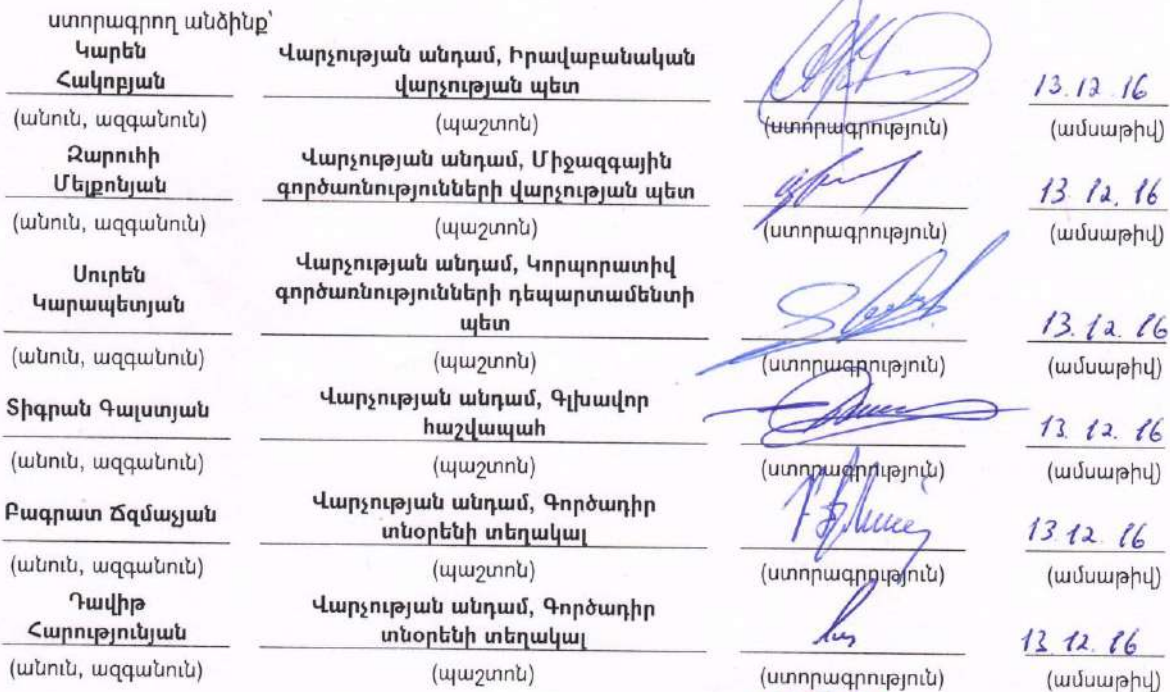 ստորագրող անձինք՝
Կարեն Հակոբյան Վարչության անդամ, Իրավաբանական վարչության պետ 13.12.16
(անուն, ազգանուն) (պաշտոն) (ստորագրություն) (ամսաթիվ)
Զարուհի Մելքոնյան Վարչության անդամ, Միջազգային գործառնությունների վարչության պետ 13.12.16
(անուն, ազգանուն) (պաշտոն) (ստորագրություն) (ամսաթիվ)
Սուրեն Կարապետյան Վարչության անդամ, Կորպորատիվ գործառնությունների դեպարտամենտի պետ 13.12.16
(անուն, ազգանուն) (պաշտոն) (ստորագրություն) (ամսաթիվ)
Տիգրան Գալստյան Վարչության անդամ, Գլխավոր հաշվապահ 13.12.16
(անուն, ազգանուն) (պաշտոն) (ստորագրություն) (ամսաթիվ)
Բագրատ Ճզմաչյան Վարչության անդամ, Գործադիր տնօրենի տեղակալ 13.12.16
(անուն, ազգանուն) (պաշտոն) (ստորագրություն) (ամսաթիվ)
Դավիթ Հարությունյան Վարչության անդամ, Գործադիր տնօրենի տեղակալ 13.12.16
(անուն, ազգանուն) (պաշտոն) (ստորագրություն) (ամսաթիվ)